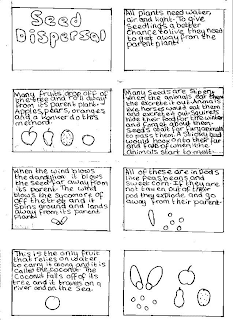 Seed
Dispersal
All plants need water,
air and light. To give
seedlings a better
chance to live they need
to get away from the
parent plant.
Many fruits drop off of
the tree and roll away
from its parent plant.
Apples, pears, oranges
and a konker do this
method.
Many seeds are
when the animals eat them
like horses would eat them
and
their food for the winter
and forget about them.
to pass them. A
would hook onto their
fur and fall of when the
animals start to moult.
When the wind blows
the dandilion it blows
the seed far away from
its parent. The wind
blows the sycamore of
off the tree and it
spins around and lands
away from its parent
plant.
All of these are in pods
like peas beans and
sweet corn. If they are
not taken out of their
pod they explode and go
away from their parent
This is the only fruit
that relies on water
to carry it along and it
is called the coconut. The
coconut falls off of its
tree and it travels on a
river and on the sea.